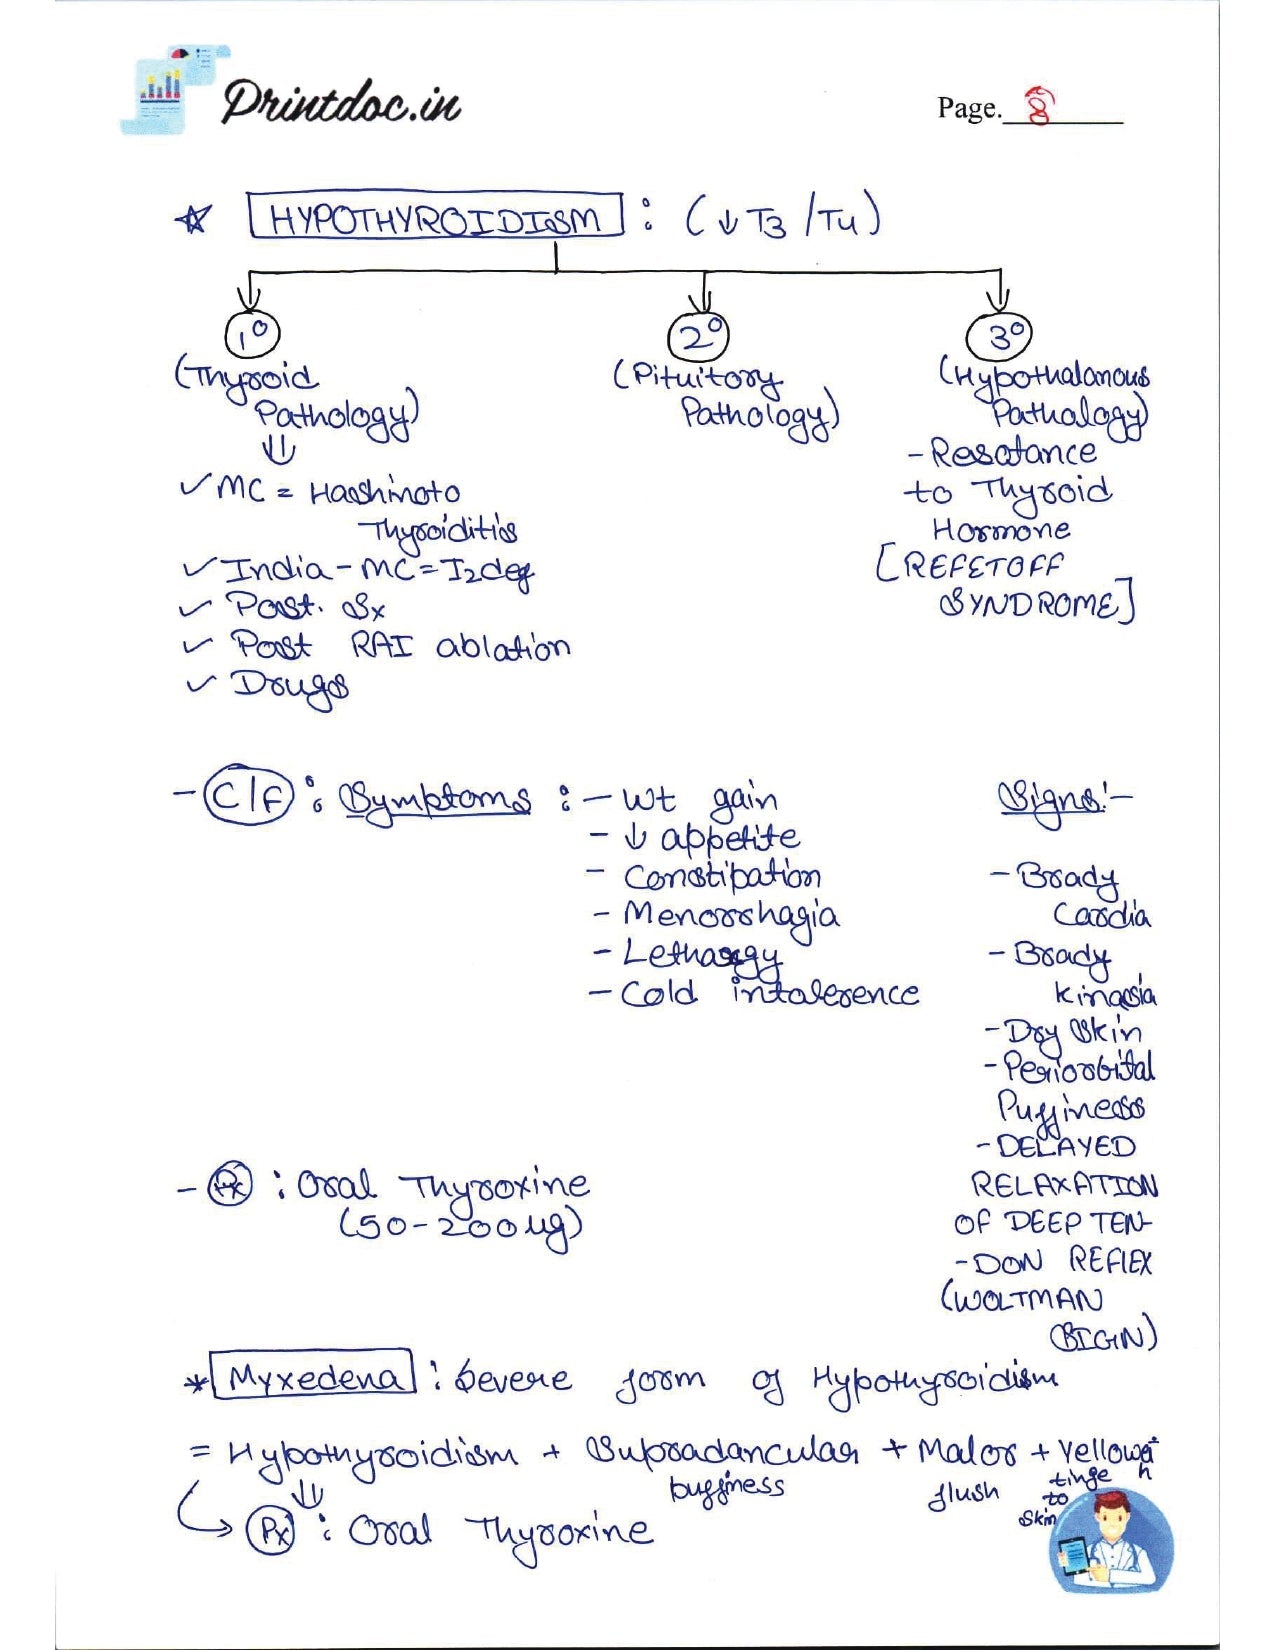 Printdoc.in
Page. 8
HYPOTHYROIDISM : (↓T3/T4)
1° 2° 3°
(Thyroid
Pathology)
✓MC = Hashimoto
Thyroiditis
✓India - MC = I2 def
✓ Post. Sx
✓ Post RAI ablation
✓ Drugs
(Pituitory
Pathology)
(Hypothalamous
Pathalogy)
- Resatance
to Thyroid
Hormone
[REFETOFF
SYNDROME]
- C/F : Symptoms : - Wt gain
- ↓ appetite
- Constipation
- Menorrhagia
- Lethargy
- Cold intalerence
Signs:-
- Brady
Cardia
- Brady
kinasia
- Dry Skin
- Periorbital
Puffiness
- DELAYED
RELAXATION
OF DEEP TEN-
- DON REFLEX
(WOLTMAN
SIGN)
- Rx : Oral Thyroxine
(50-200 ug)
* Myxedena : Severe form of Hypothyroidism
= Hypothyroidism + Supradancular + Malor + Yellowish
puffiness flush tinge
to
Skin
Rx : Oral Thyroxine